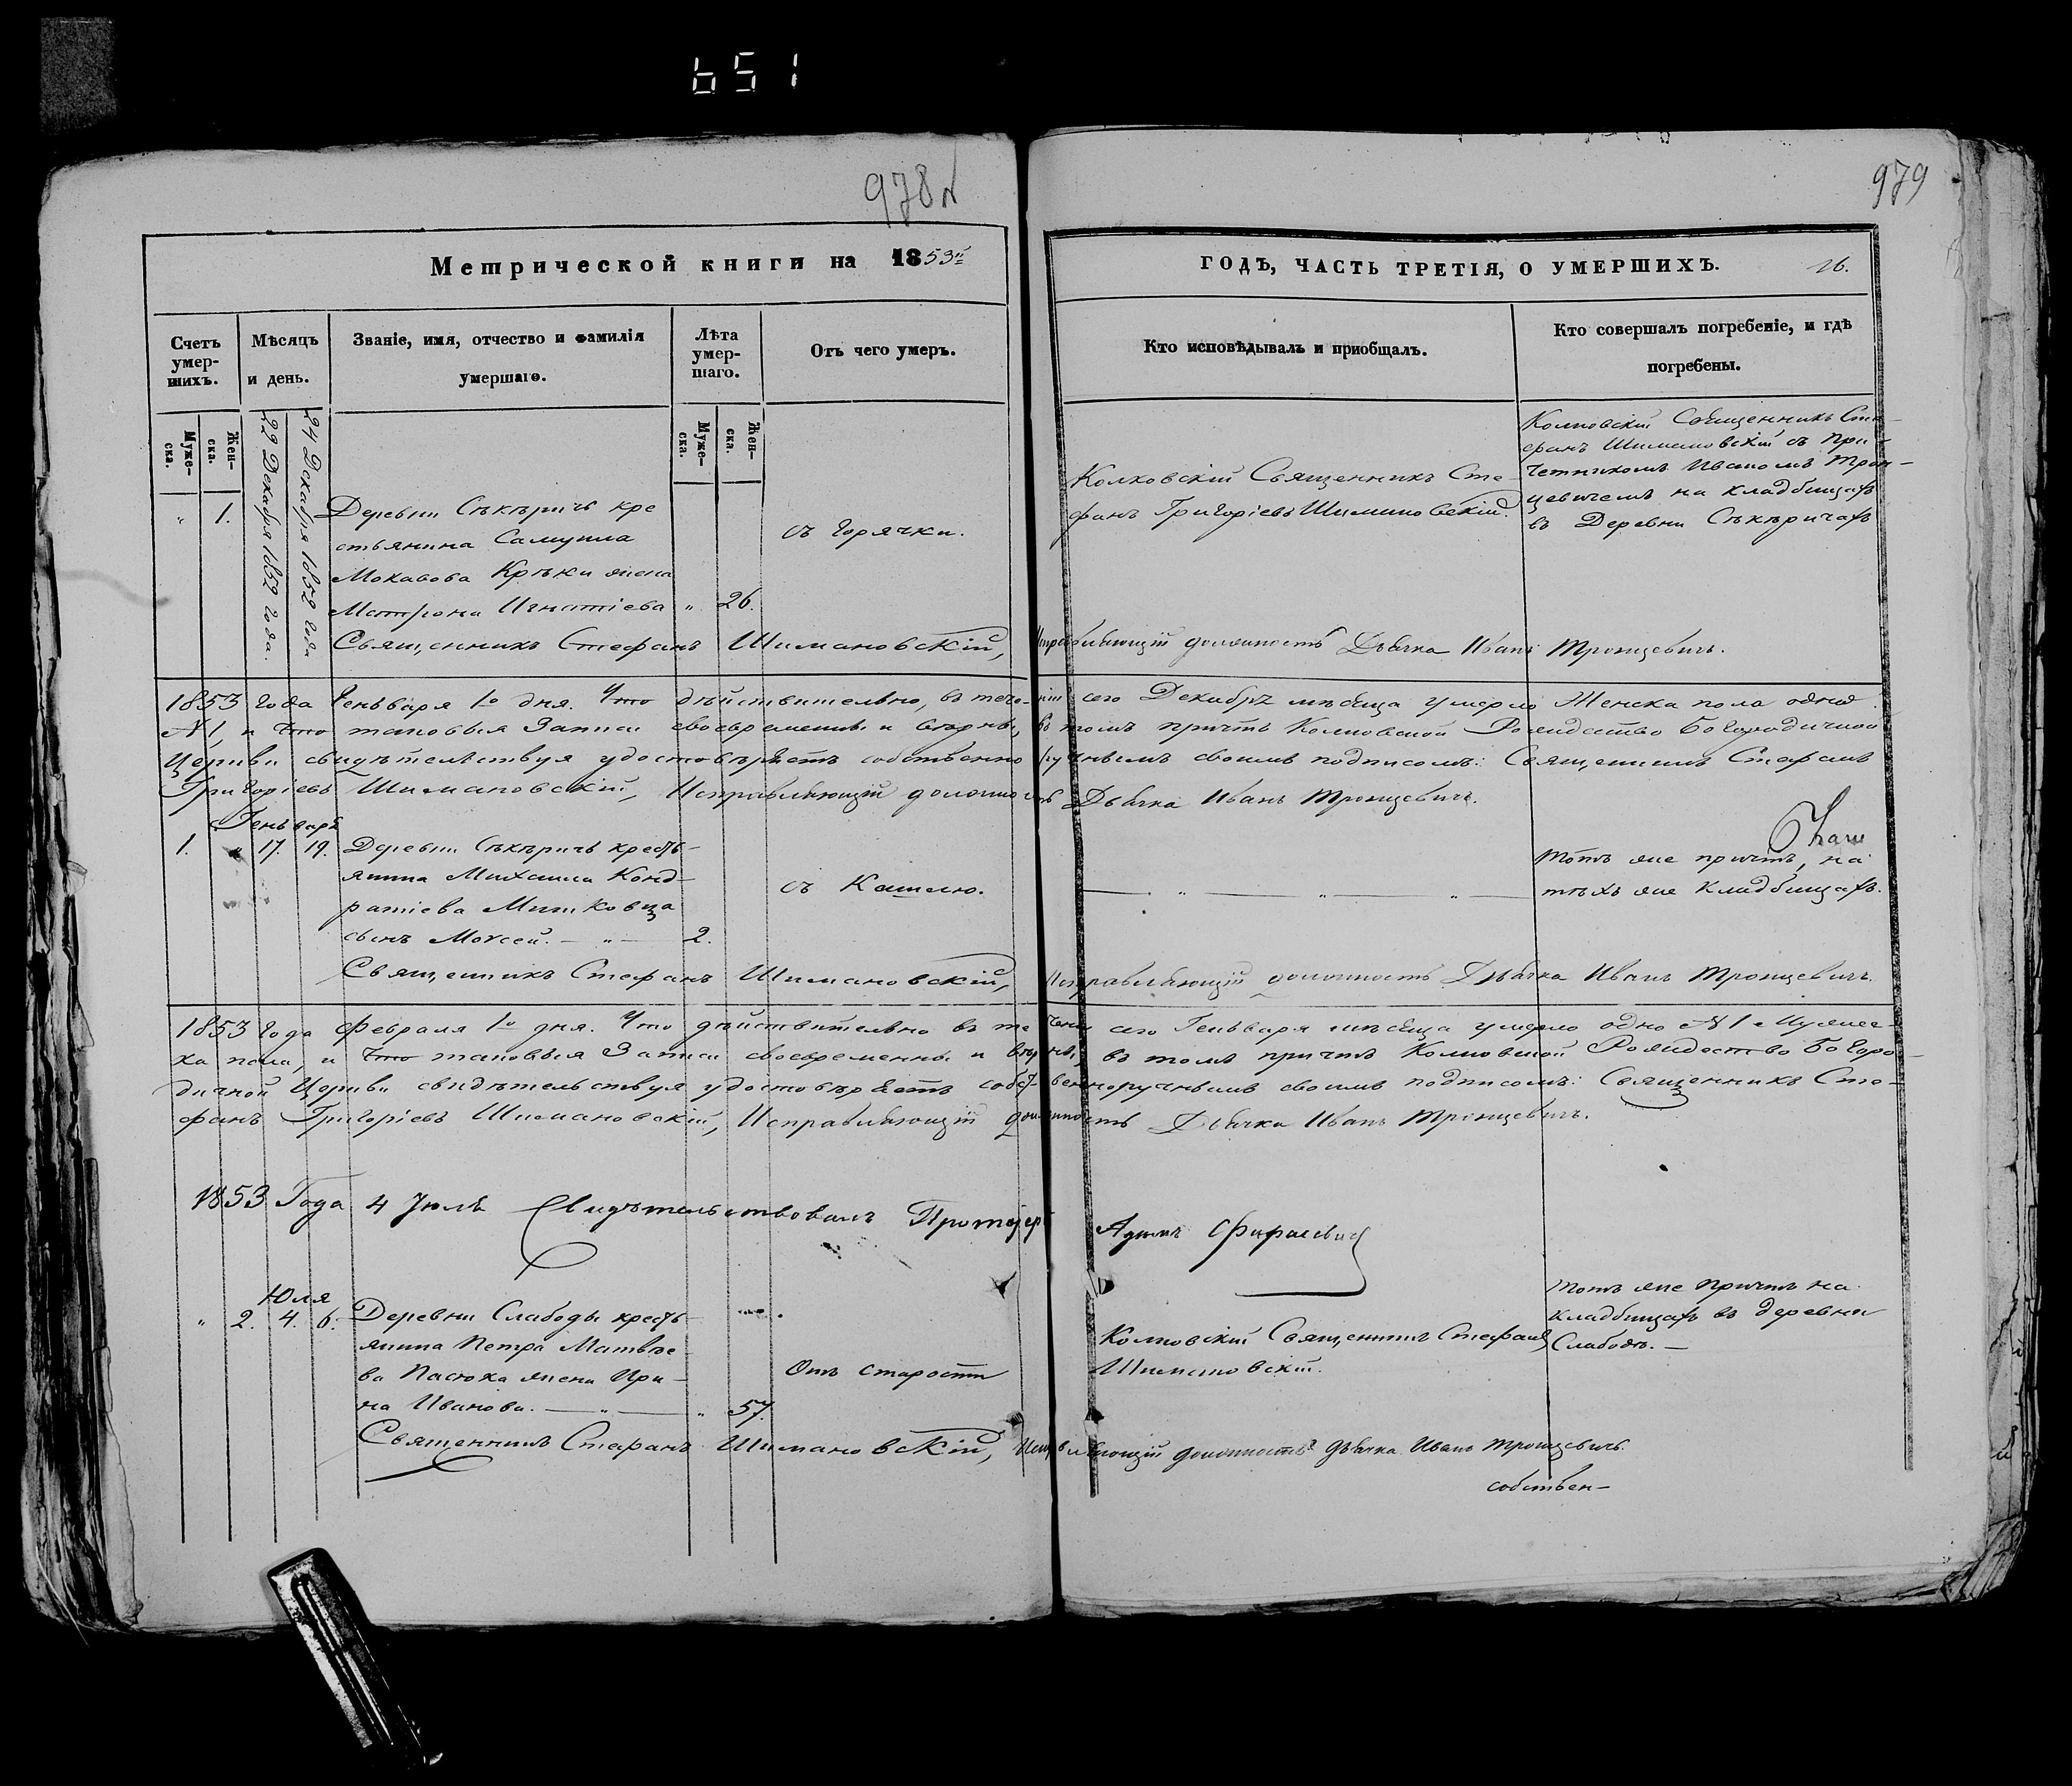 651
978
979
Метрической книги на 1853й
ГОДЪ, ЧАСТЬ ТРЕТІЯ, О УМЕРШИХЪ.
16.
Счетъ умер-шихъ.
Мѣсяцъ и день.
Званіе, имя, отчество и фамилія
умершаго.
Лѣта умер-шаго.
Отъ чего умеръ.
Кто исповѣдывалъ и пріобщалъ.
Кто совершалъ погребеніе, и гдѣ
погребены.
Муже-ска.
Жен-ска.
Муже-ска.
Жен-ска.
22 Декабря 1852 года.
24 Декабря 1852 года
" 1.
Деревни Сѣкѣричъ кре
стьянина Самуила
жена
Матрона Игнатіева " 26.
съ горячки.
Колковскій Священникъ Сте-
фанъ Григоріевъ Шимановскій.
Колковскій Священникъ Сте-
фанъ Шимановскій съ при-
четникомъ Иваномъ Трон-
цевичемъ на кладбищахъ
въ Деревни Сѣкѣричахъ
Священникъ Стефанъ Шимановскій, Исправляющій должность Дьячка Иванъ Тронцевичъ.
1853 года Генъваря 1о дня. Что дѣйствительно, въ течении сего Декабря мѣсяца умерло Женска пола одна
№ 1, и что таковыя Записи своевременны и вѣрны, въ томъ причтъ Колковской Рождество Богородичной
Церкви свидѣтельствуя удостовѣряетъ собственноручнымъ своимъ подписомъ: Священникъ Стефанъ
Григоріевъ Шимановскій, Исправляющій должность Дьячка Иванъ Тронцевичъ.
Генъваря
1. " 17. 19.
Деревни Сѣкѣричъ кресть-
янина Михаила Конд-
ратіева Митковца
сынъ Моѵсей. — " — 2.
съ Кашлю.
— " — " — " —
Тотъ же причтъ, на
тѣхъ же кладбищахъ.
Священникъ Стефанъ Шимановскій, Исправляющій должность Дьячка Иванъ Тронцевичъ.
1853 года Февраля 1о дня. Что дѣйствительно въ течении сего Генъваря мѣсяца умерло одно № 1 Мужес-
ка пола, и что таковыя Записи своевременны и вѣрны, въ томъ причтъ Колковской Рождество Богоро-
дичной Церкви свидѣтельствуя удостовѣряетъ собственноручнымъ своимъ подписомъ: Священникъ Сте-
фанъ Григоріевъ Шимановскій, Исправляющій должность Дьячка Иванъ Тронцевичъ.
1853 Года 4 Июля Свидѣтельствовалъ Протоіерей
Юля
" 2. 4. 6.
Деревни Слабоды кресть-
янина Петра Матвѣе-
ва Пасюка жена Ири-
на Иванова. — " — " 57.
Отъ старости
Колковскій Священникъ Стефанъ
Шимановскій.
Тотъ же Причтъ на
кладбищахъ въ деревни
Слабодѣ. —
Священникъ Стефанъ Шимановскій, Исправляющій должность Дьячка Иванъ Тронцевичъ.
собствен-